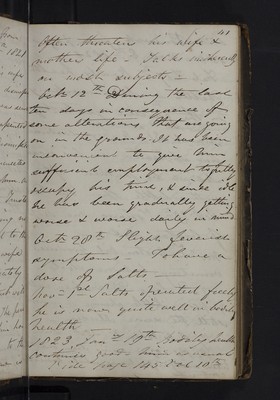 41
Often threatens his wife &
mother life - Talks incoherently
on most subjects -
Octr 12th During the last
ten days in consequence of
some alterations that are going
on in the grounds, It has been
inconvenient to give him
sufficient employment to fully
occupy his time, & since idle
he has been gradually getting
worse & worse daily in mind
Octr 28th Slight feverish
symptoms - To have a
dose of Salts -
Novr 1st Salts operated freely
he is now quite well in bodily
health
1823 Jany 19th Bodily health
continues good mind as usual
Vide page 145 Vol 10th